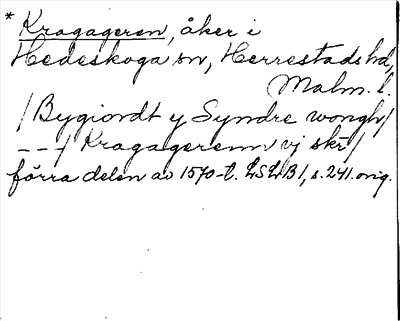 * Kragageren, åker i
Hedeskoga sn, Herrestads hd,
Malm. l.
/Bygiordt y Syndre wongh/
---/ Kragagerenn vj skr/
förra delen av 1570-t. LSLB1, s. 241. orig.